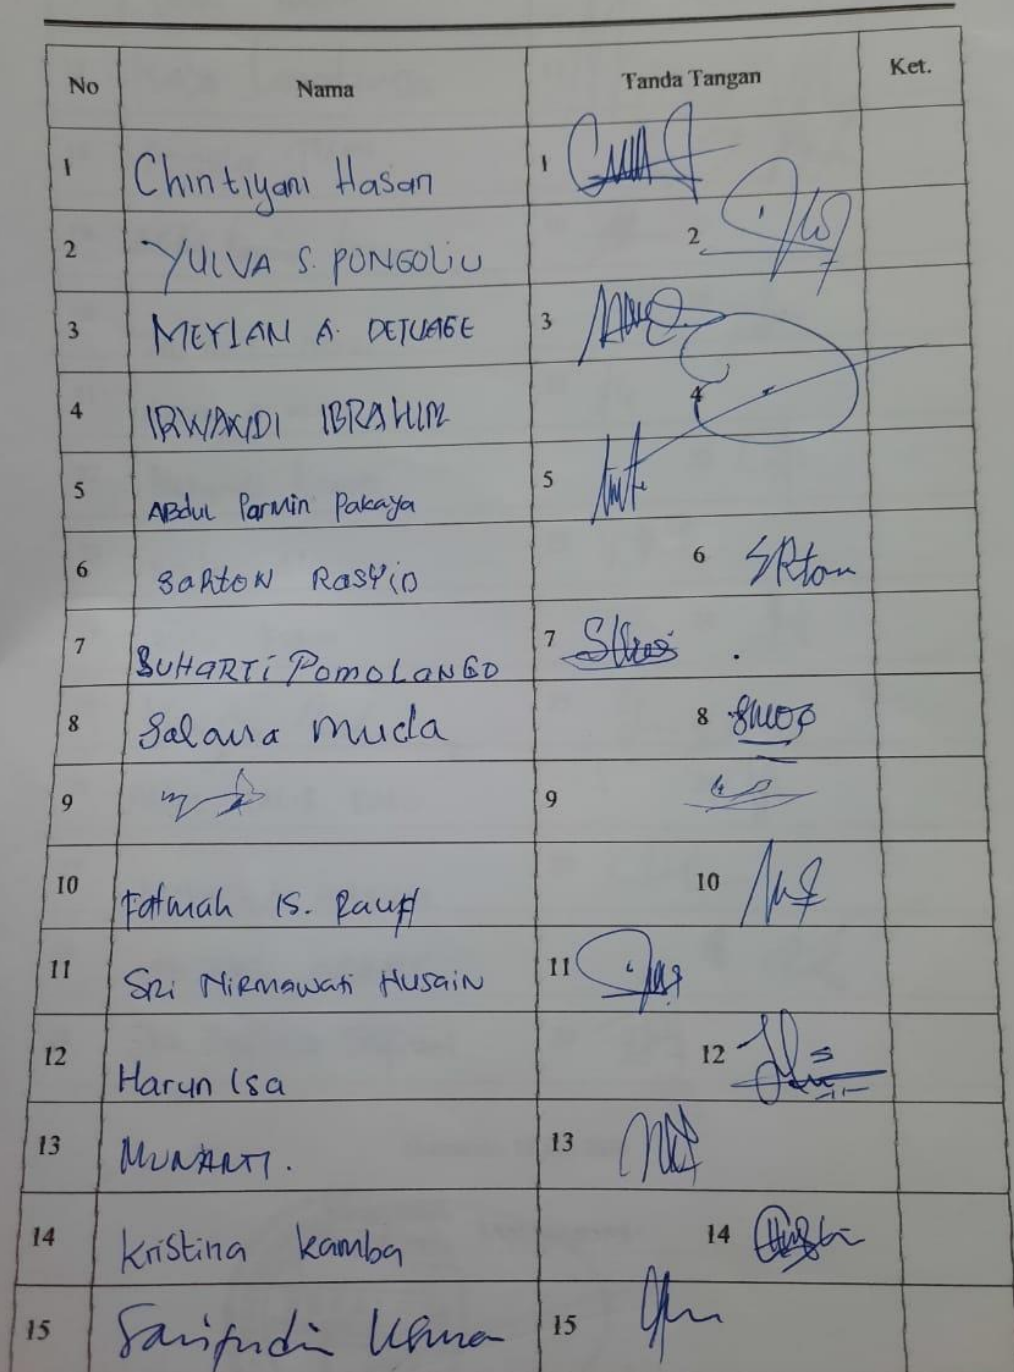 No Nama Tanda Tangan Ket.
1 Chintiyani Hasan 1
2 YULVA S. PONGOLIU 2
3 MEYLAN A. DETUAGE 3
4 IRWANDI IBRAHIM 4
5 ABdul Parmin Pakaya 5
6 SARTON RASYID 6 SRton
7 SUHARTI POMOLANGO 7
8 Salama Muda 8
9 9
10 Fatmah IS. Rauf 10
11 SRi NiRmawati Husain 11
12 Harun Isa 12
13 MUNARTI. 13
14 Kristina Kamba 14
15 Sarifudin 15